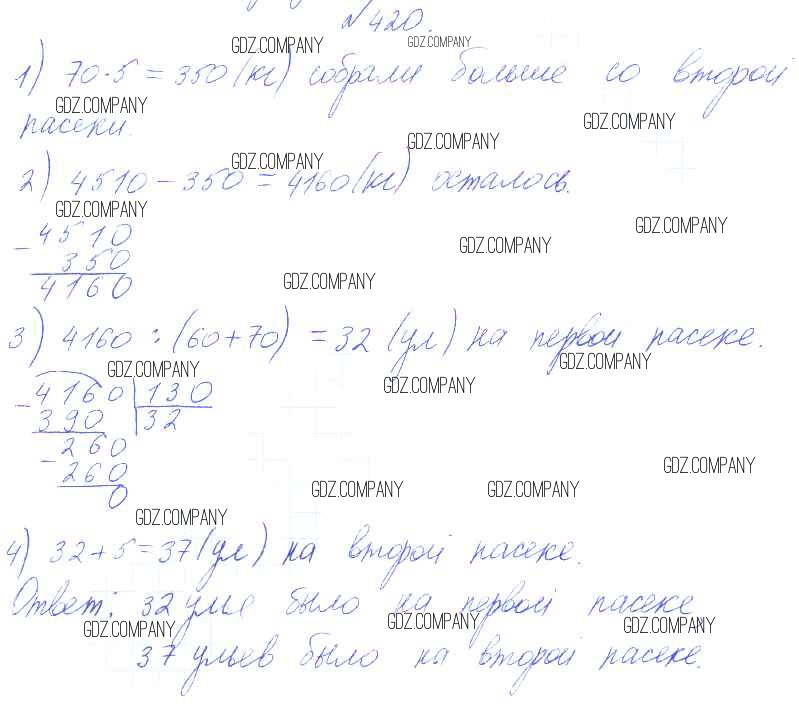 №420.
GDZ.COMPANY GDZ.COMPANY
1) 70·5=350(кг) собрали больше со второй
GDZ.COMPANY GDZ.COMPANY
пасеки.
GDZ.COMPANY GDZ.COMPANY
2) 4510-350=4160(кг) осталось.
GDZ.COMPANY GDZ.COMPANY
- 4510
GDZ.COMPANY
350
GDZ.COMPANY
4160
3) 4160:(60+70)=32(ул) на первой пасеке.
GDZ.COMPANY GDZ.COMPANY
GDZ.COMPANY
- 4160 130
390 32
- 260
GDZ.COMPANY
260
GDZ.COMPANY GDZ.COMPANY
0
GDZ.COMPANY
4) 32+5=37(ул) на второй пасеке.
Ответ: 32 улье было на первой пасеке,
GDZ.COMPANY GDZ.COMPANY GDZ.COMPANY
37 ульев было на второй пасеке.